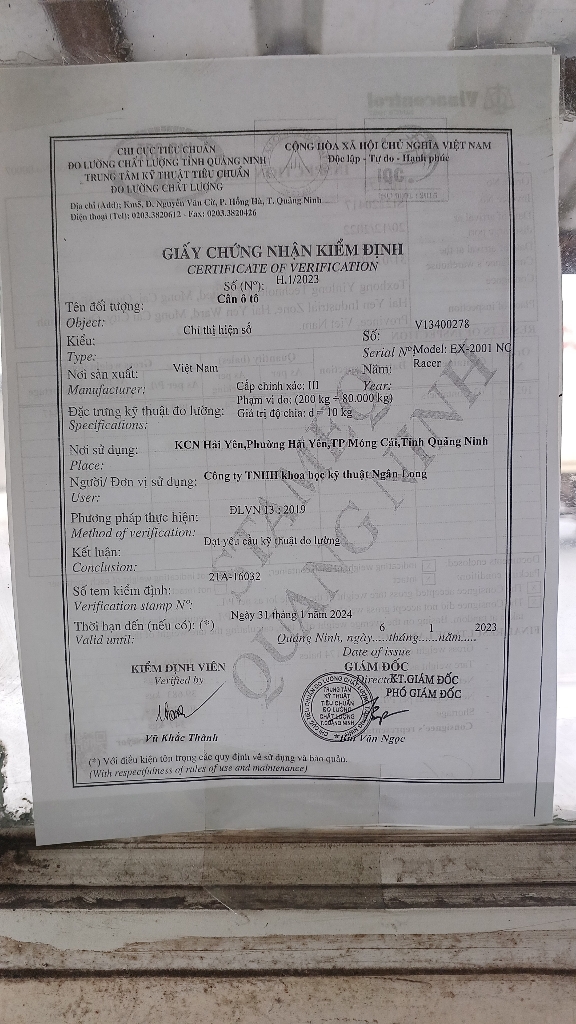 CHI CỤC TIÊU CHUẨN
ĐO LƯỜNG CHẤT LƯỢNG TỈNH QUẢNG NINH
TRUNG TÂM KỸ THUẬT TIÊU CHUẨN
ĐO LƯỜNG CHẤT LƯỢNG
CỘNG HÒA XÃ HỘI CHỦ NGHĨA VIỆT NAM
Độc lập - Tự do - Hạnh phúc
Địa chỉ (Add); Km5, Đ. Nguyễn Văn Cừ, P. Hồng Hà, T. Quảng Ninh
Điện thoại (Tel): 0203.3820612 - Fax: 0203.3820426
GIẤY CHỨNG NHẬN KIỂM ĐỊNH
CERTIFICATE OF VERIFICATION
Số (Nº): H.1/2023
Tên đối tượng: Cân ô tô
Object:
Kiểu: Chỉ thị hiện số
Type:
Số: V13400278
Serial Nº: Model: EX-2001 NC
Racer
Nơi sản xuất: Việt Nam
Manufacturer:
Năm:
Year:
Đặc trưng kỹ thuật đo lường:
Specifications:
Cấp chính xác: III
Phạm vi đo: (200 kg ÷ 80.000 kg)
Giá trị độ chia: d = 10 kg
Nơi sử dụng: KCN Hải Yên,Phường Hải Yên,TP Móng Cái,Tỉnh Quảng Ninh
Place:
Người/ Đơn vị sử dụng: Công ty TNHH khoa học kỹ thuật Ngân Long
User:
Phương pháp thực hiện: ĐLVN 13 : 2019
Method of verification:
Kết luận: Đạt yêu cầu kỹ thuật đo lường
Conclusion:
Số tem kiểm định: 21A-16032
Verification stamp Nº:
Thời hạn đến (nếu có): (*) Ngày 31 tháng 1 năm 2024
Valid until:
Quảng Ninh, ngày.....6.....tháng.....1.....năm.....2023
Date of issue
KIỂM ĐỊNH VIÊN
Verified by
GIÁM ĐỐC
Director
KT.GIÁM ĐỐC
PHÓ GIÁM ĐỐC
TRUNG TÂM
KỸ THUẬT
TIÊU CHUẨN
ĐO LƯỜNG
CHẤT LƯỢNG
Vũ Khắc Thành
Bùi Văn Ngọc
(*) Với điều kiện tôn trọng các quy định về sử dụng và bảo quản.
(With respectfulness of rules of use and maintenance)
STAMEQ
QUANG NINH